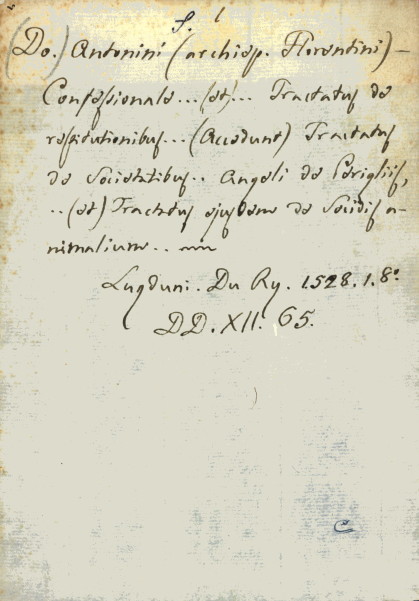 S. 1
(Do.) Antonini (archiep. Florentini) —
Confessionale... (et)... Tractatus de
restitutionibus... (Accedunt) Tractatus
de Societatibus.. Angeli de Periglis,
..(et) Tractatus ejusdem de Socidis a-
nimalium..
Lugduni. Du Ry. 1528. 1. 8°
DD. XII. 65.
C